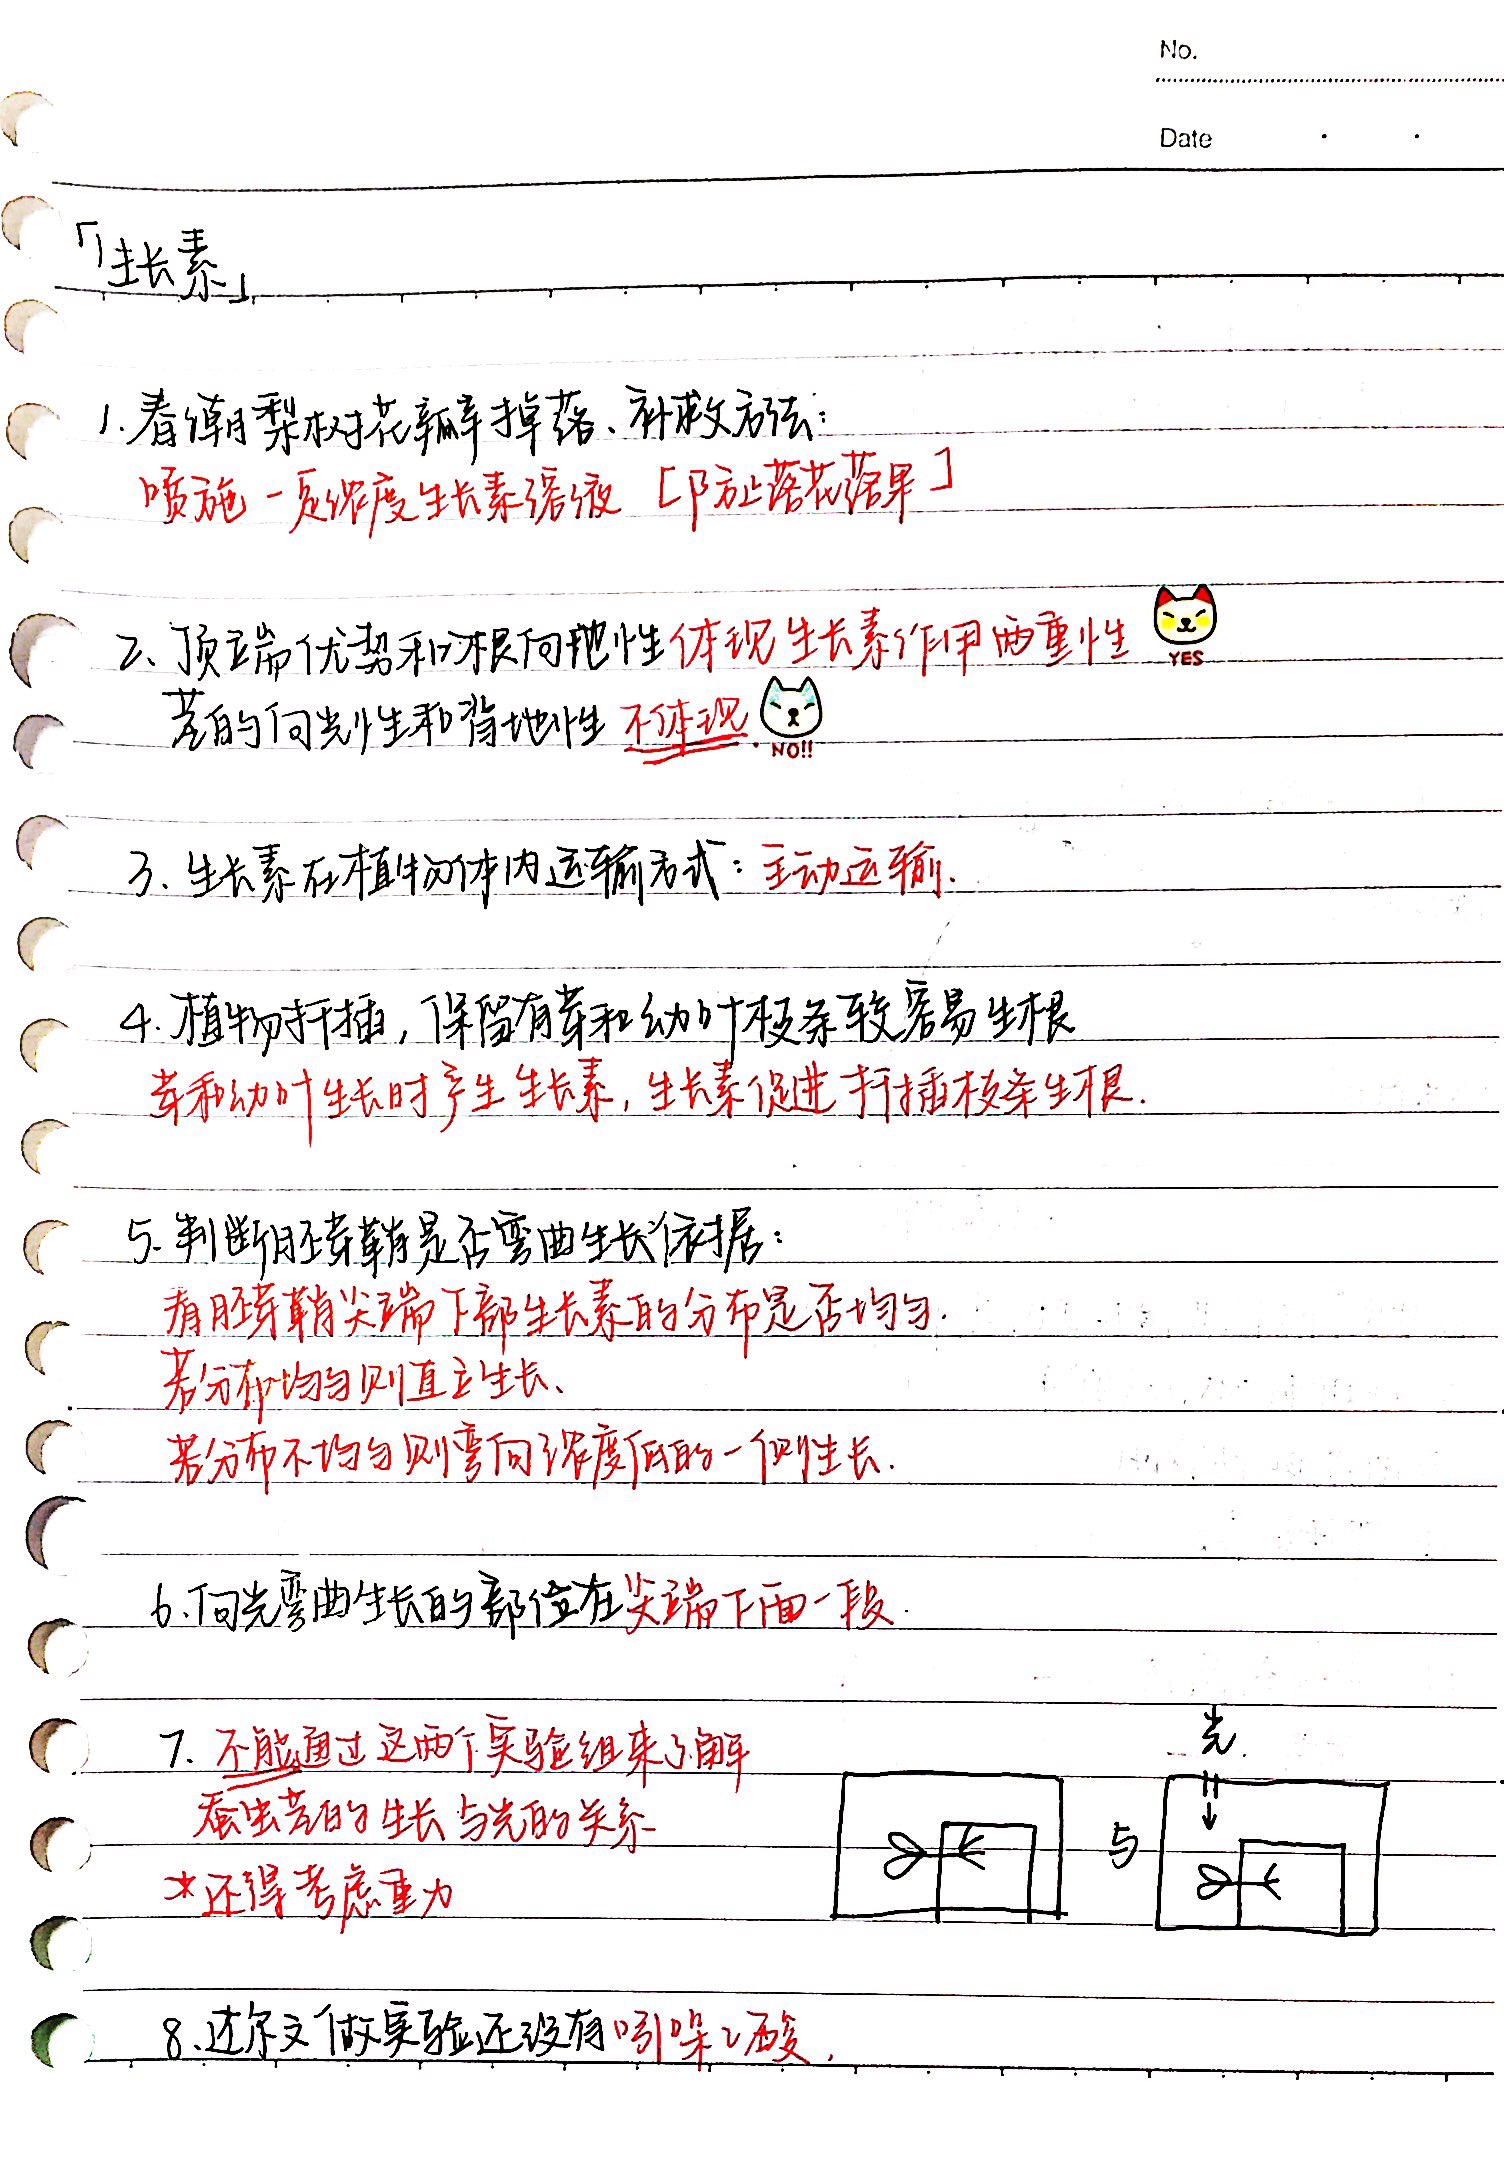 No.
Date
「生长素」
1.春潮梨树花瓣掉落、补救方法:
喷施一定浓度生长素溶液[防止落花落果]
2、顶端优势和根向地性体现生长素作用两重性
YES
茎的向光性和背地性不体现.
NO!!
3、生长素在植物体内运输方式:主动运输.
4.植物扦插,保留有芽和幼叶枝条较容易生根
芽和幼叶生长时产生生长素,生长素促进扦插枝条生根.
5.判断胚芽鞘是否弯曲生长依据:
看胚芽鞘尖端下部生长素的分布是否均匀.
若分布均匀则直立生长、
若分布不均匀则弯向浓度低的一侧生长.
6.向光弯曲生长的部位在尖端下面一段.
7.不能通过这两个实验组来了解
蚕虫茎的生长与光的关系
*还得考虑重力
光
与
8.达尔文做实验还没有吲哚乙酸.